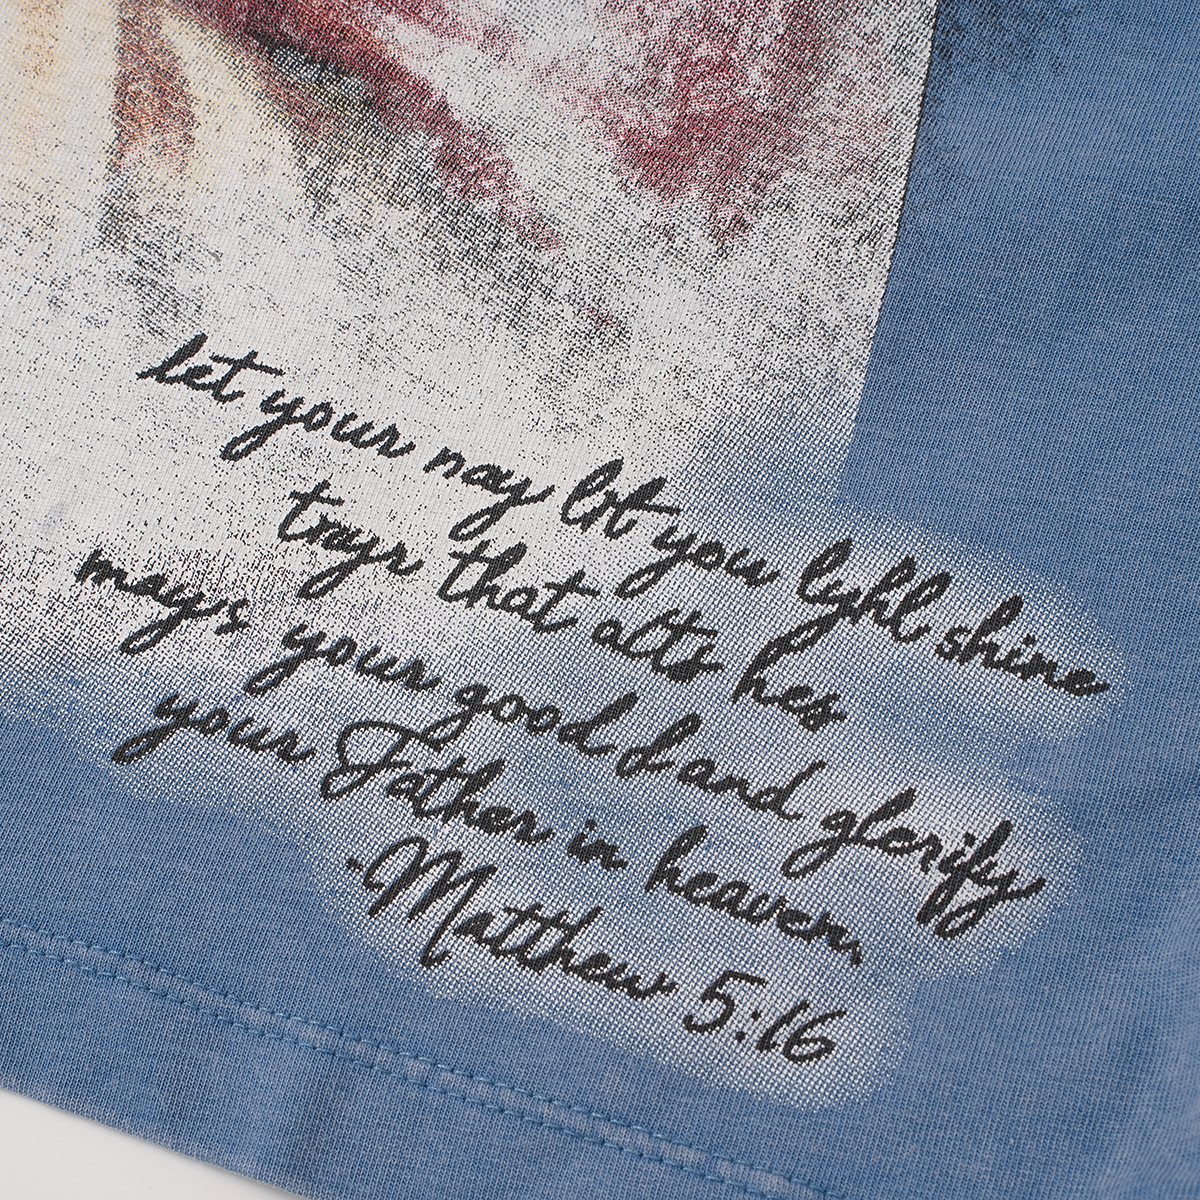 let your nay lot you lyhl shine
tryr that alts hes
mays your good d and glerify
your Father in heaven,
-Matthew 5:16